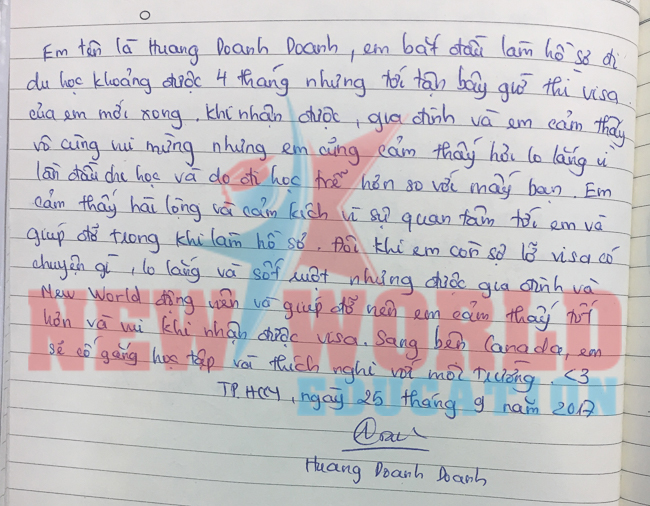 Em tên là Huang Doanh Doanh, em bắt đầu làm hồ sơ đi
du học khoảng được 4 tháng nhưng tới tận bây giờ thì visa
của em mới xong. Khi nhận được, gia đình và em cảm thấy
vô cùng vui mừng nhưng em cũng cảm thấy hơi lo lắng vì
lần đầu du học và do đi học trễ hơn so với mấy bạn. Em
cảm thấy hài lòng và cảm kích vì sự quan tâm tới em và
giúp đỡ trong khi làm hồ sơ. Đôi khi em còn sợ lỡ visa có
chuyện gì, lo lắng và sốt ruột nhưng được gia đình và
New World động viên và giúp đỡ nên em cảm thấy tốt
hơn và vui khi nhận được visa. Sang bên Canada, em
sẽ cố gắng học tập và thích nghi với môi trường. <3
TP.HCM, ngày 25 tháng 9 năm 2017
Huang Doanh Doanh
NEW WORLD
EDUCATION